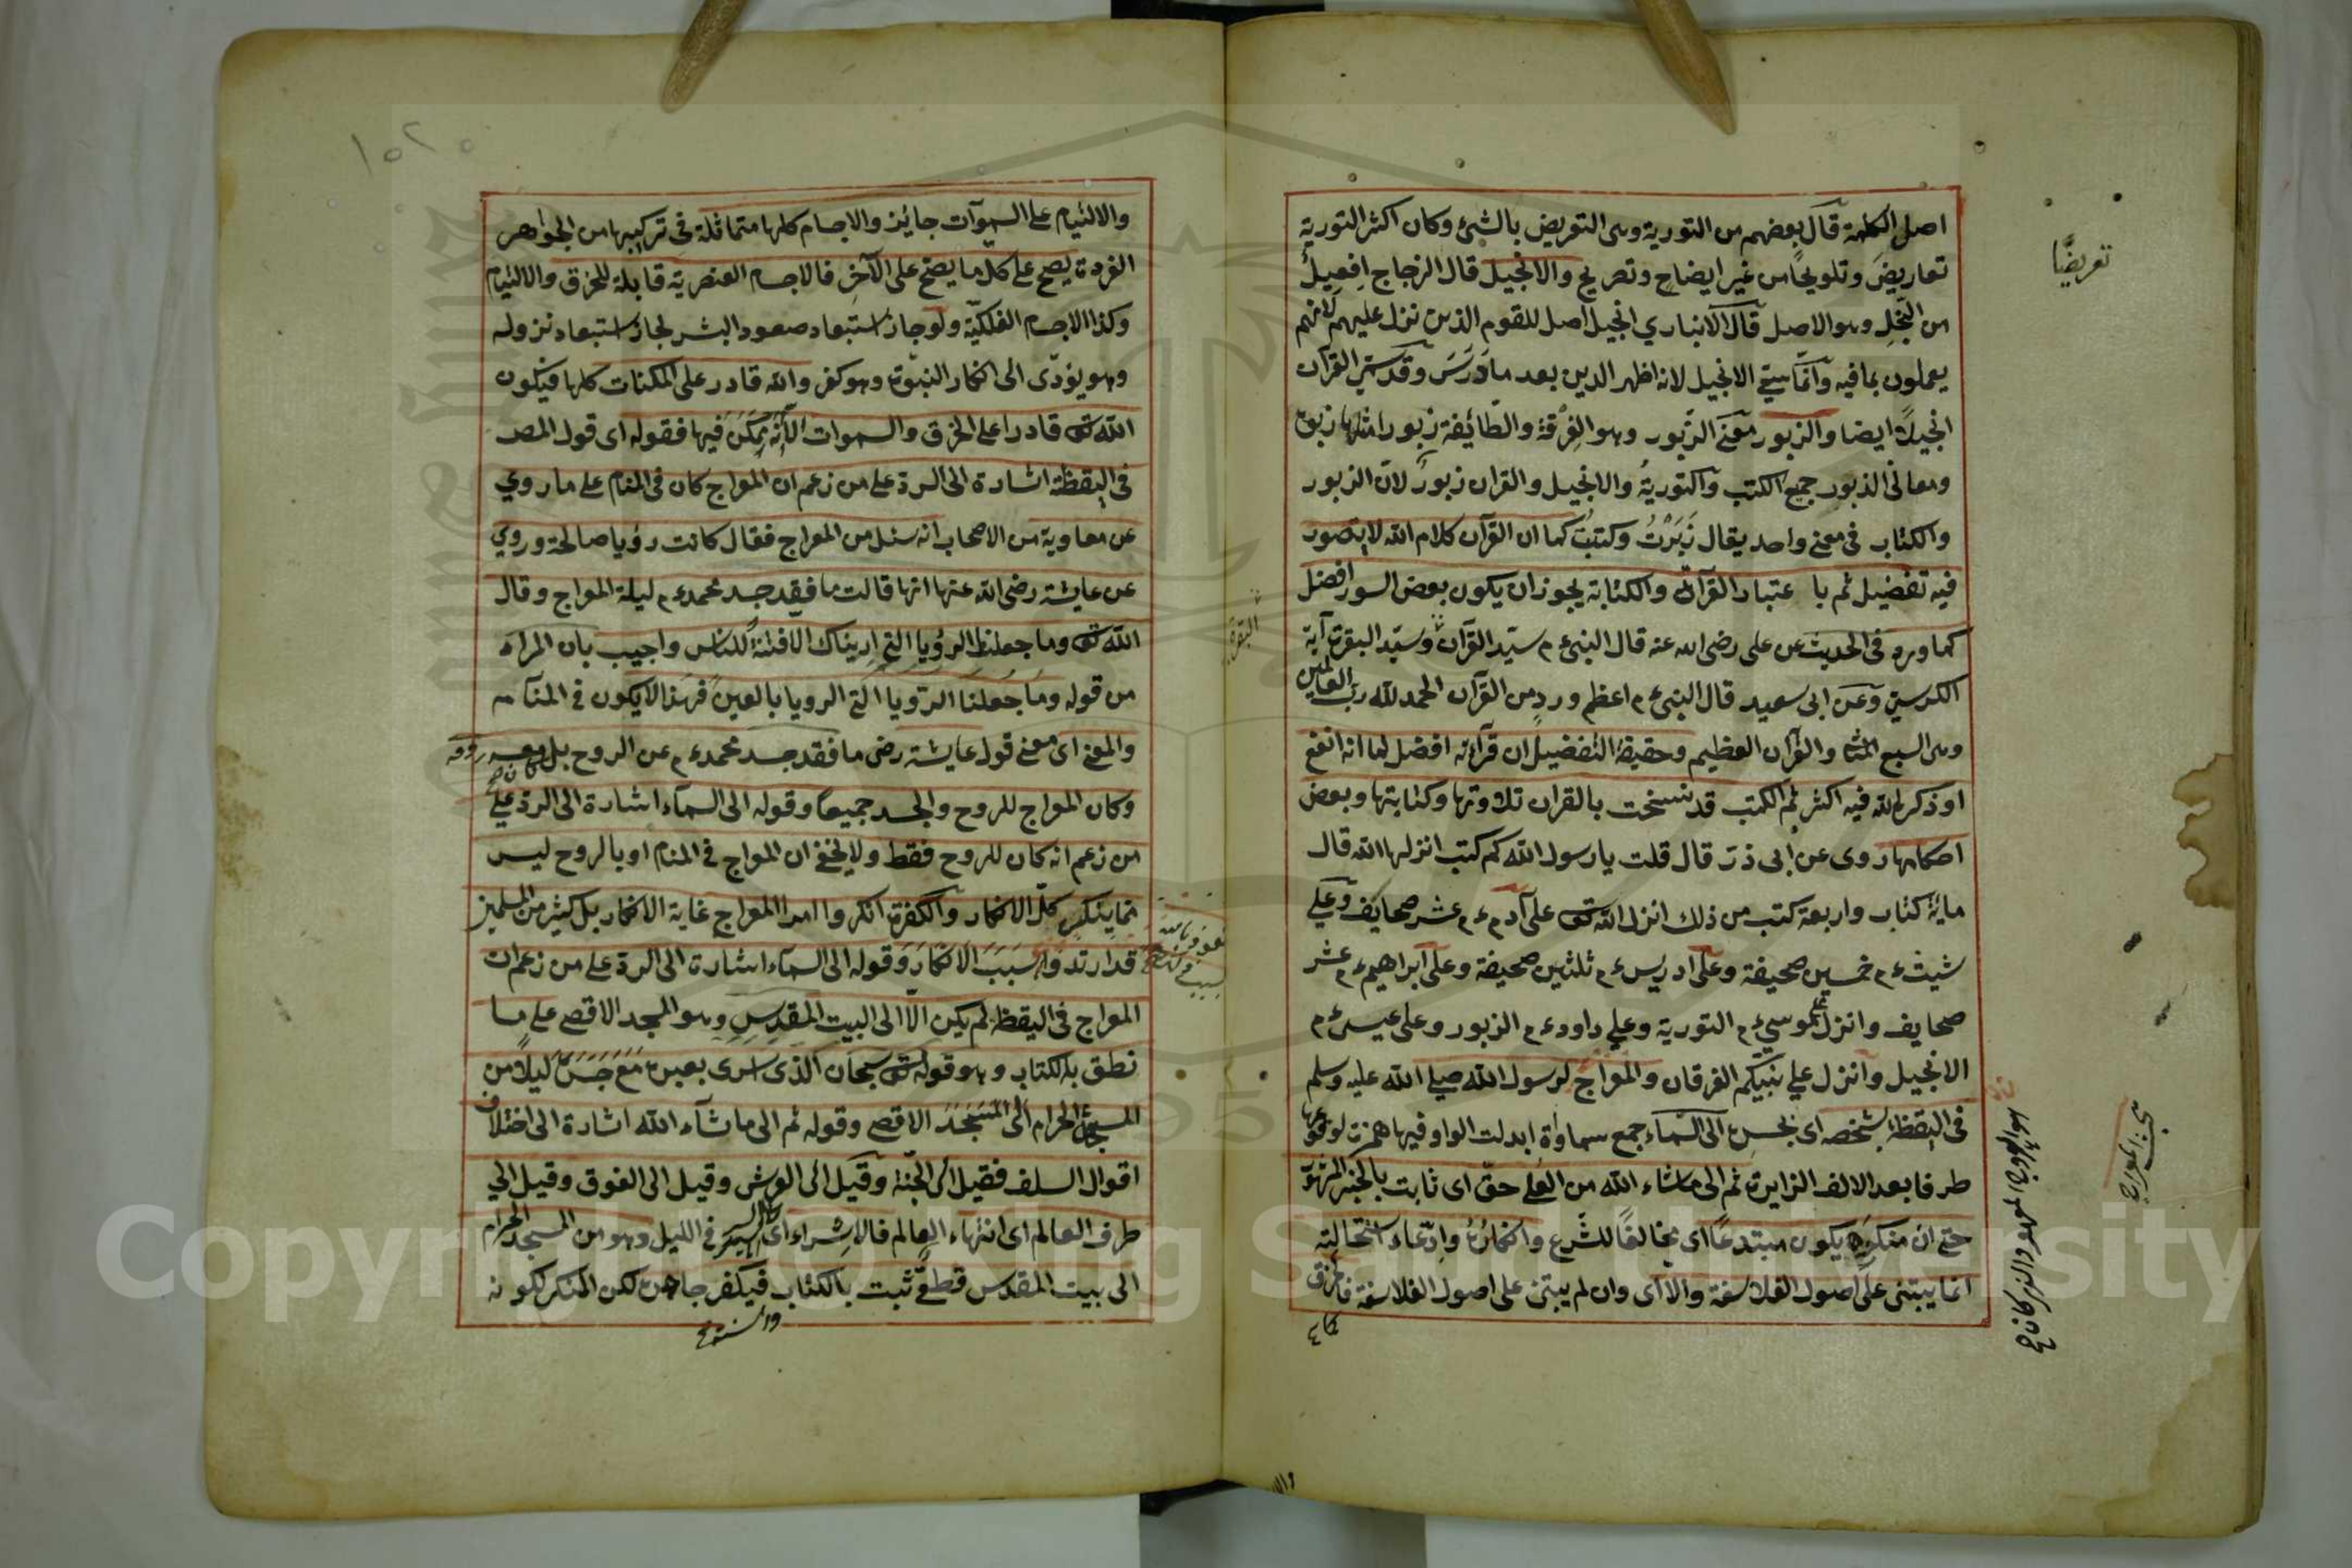 اصل الكلمة قال بعضهم من التورية وهى التعريض بالشئ وكان اكثر التورية
تعاريض وتلويحا من غير ايضاح وتصريح والانجيل قال الزجاج افعيل
من النجل وهو الاصل قال الانباري انجيل اصل للقوم الذين نزل عليهم لانهم
يعملون بما فيه وانما سمي الانجيل لانه اظهر الدين بعد ما درس وقد سمي القرآن
انجيلا ايضا والزبور معنى الزبور وهو الفرقة والطائفة زبورا
ومعانى الزبور جميع الكتب والتورية والانجيل والقران زبور لان الزبور
والكتاب فى معنى واحد يقال زبرت وكتبت كما ان القرآن كلام الله لا يتصور
فيه تفضيل ثم با عتبار القرآة والكتابة يجوز ان يكون بعض السور افضل
كما ورد فى الحديث عن على رضى الله عنه قال النبى ءم سيد القرآن وسيد البقرة آية
الكرسي وعن ابى سعيد قال النبى ءم اعظم ورد من القرآن الحمد لله رب العالمين
وهى السبع المثا والقرآن العظيم وحقيقة التفضيل ان قرآءته افضل لما انه انفع
او ذكر الله فيه اكثر ثم الكتب قد نسخت بالقران تلاوتها وكتابتها وبعض
احكامها روى عن ابى ذر قال قلت يا رسول الله كم كتب انزلها الله قال
ماية كتاب واربعة كتب من ذلك انزل الله تع على آدم ءم عشر صحايف وعلى
شيث ءم خمسين صحيفة وعلى ادريس ءم ثلثين صحيفة وعلى ابراهيم ءم عشر
صحايف وانزل على موسي ءم التورية وعلى داود ءم الزبور وعلى عيسى ءم
الانجيل وانزل على نبيكم الفرقان والمعراج لرسول الله صلى الله عليه وسلم
فى اليقظة بشخصه اى بجسده الى السماء جمع سماوة ابدلت الواو فيها همزة لوقوعها
طرفا بعد الالف الزايدة ثم الى ما شاء الله من العلى حق اى ثابت بالخبر المشهور
حتى ان منكره يكون مبتدعا اى مخالفا للشرع وانكاره وادعاء استحالته
انما يبتنى على اصول الفلاسفة والا اى وان لم يبتنى على اصول الفلاسفة فالخرق
تعريضا
البقرة
بحث المعراج
والالتيام على السموآت جائز والاجسام كلها متماثلة فى تركيبها من الجواهر
الفردة يصح على كل ما يصح على الآخر فالاجسام العنصرية قابلة للخرق والالتيام
وكذا الاجسام الفلكية ولو جاز استبعاد صعود البشر لجاز استبعاد نزوله
وهو يؤدى الى انكار النبوة وهو كفر والله قادر على الممكنات كلها فيكون
الله تع قادرا على الخرق والسموات لانه يمكن فيها فقوله اى قول المصـ
فى اليقظة اشارة الى الرد على من زعم ان المعراج كان فى المنام على ما روي
عن معاوية من الاصحاب انه سئل من المعراج فقال كانت رؤيا صالحة وروي
عن عايشة رضى الله عنها انها قالت ما فقد جسد محمد ءم ليلة المعراج وقال
الله تع وما جعلنا الرؤيا التى اريناك الا فتنة للناس واجيب بان المراد
من قوله وما جعلنا الرؤيا التى الرويا بالعين فهذا لا يكون فى المنام
والمعنى اى معنى قول عايشة رضى ما فقد جسد محمد ءم عن الروح بل معه روحه
وكان المعراج للروح والجسد جميعا وقوله الى السمآء اشارة الى الرد على
من زعم انه كان للروح فقط ولا يخفى ان المعراج فى المنام او بالروح ليس
مما ينكر كل الانكار والكفرة انكروا امر المعراج غاية الانكار بل كثير من المسلمين
قد ارتدوا بسبب الانكار وقوله الى السمآء اشارة الى الرد على من زعم ان
المعراج فى اليقظة لم يكن الا الى البيت المقدس وهو المسجد الاقصى على ما
نطق به الكتاب وهو قوله تع سبحان الذى اسرى بعبده مع جسده ليلا من
المسجد الحرام الى المسجد الاقصى وقوله ثم الى ما شآء الله اشارة الى اختلاف
اقوال السلف فقيل الى الجنة وقيل الى العرش وقيل الى الفوق وقيل الى
طرف العالم اى انتهاء العالم فالاسراء اى السير فى الليل وهو من المسجد الحرام
الى بيت المقدس قطعى ثبت بالكتاب فيكفر جاحده لكن المنكر لكونه
نعوذ بالله
Copyright © King Saud University